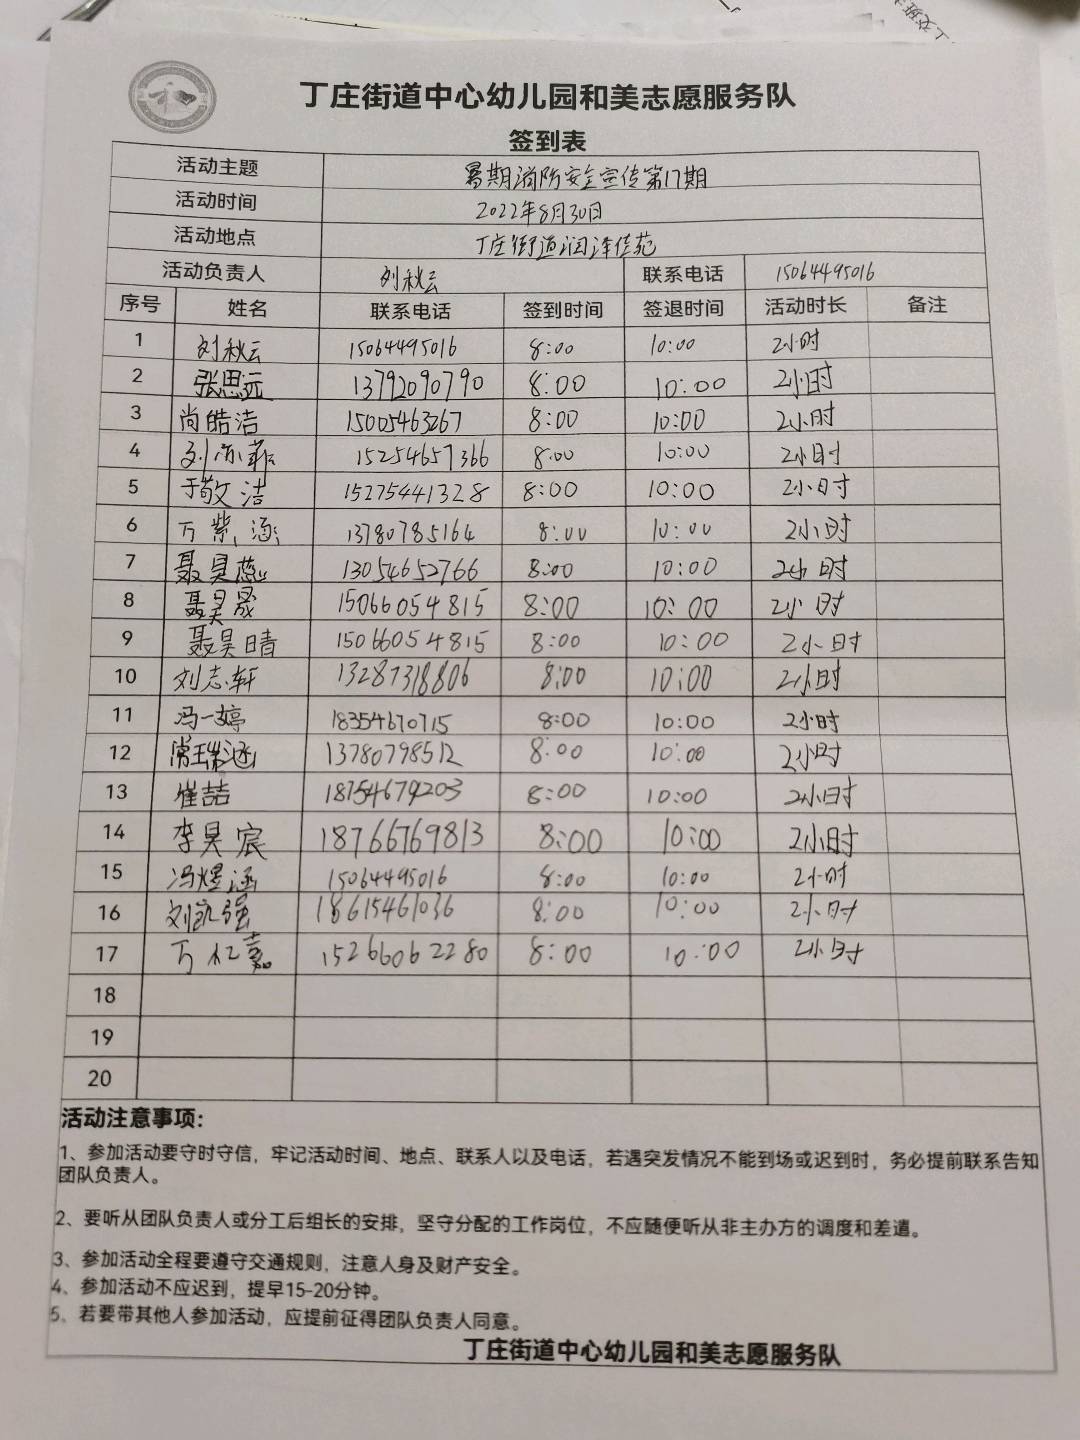 丁庄街道中心幼儿园和美志愿服务队
签到表
活动主题 暑期消防安全宣传第17期
活动时间 2022年8月30日
活动地点 丁庄街道润泽佳苑
活动负责人 刘秋云 联系电话 15064495016
序号 姓名 联系电话 签到时间 签退时间 活动时长 备注
1 刘秋云 15064495016 8:00 10:00 2小时
2 张思远 13792090790 8:00 10:00 2小时
3 尚皓洁 15005463267 8:00 10:00 2小时
4 刘 菲 15254657366 8:00 10:00 2小时
5 于敬洁 15275441328 8:00 10:00 2小时
6 万紫涵 13780785164 8:00 10:00 2小时
7 聂昊蕊 13054652766 8:00 10:00 2小时
8 聂昊晟 15066054815 8:00 10:00 2小时
9 聂昊晴 15066054815 8:00 10:00 2小时
10 刘志轩 13287318806 8:00 10:00 2小时
11 冯一婷 18354670715 8:00 10:00 2小时
12 常瑞涵 13780798512 8:00 10:00 2小时
13 崔喆 18754679203 8:00 10:00 2小时
14 李昊宸 18766769813 8:00 10:00 2小时
15 冯煜涵 15064495016 8:00 10:00 2小时
16 刘凯强 18615461036 8:00 10:00 2小时
17 万亿嘉 15266062280 8:00 10:00 2小时
18
19
20
活动注意事项：
1、参加活动要守时守信，牢记活动时间、地点、联系人以及电话，若遇突发情况不能到场或迟到时，务必提前联系告知
团队负责人。
2、要听从团队负责人或分工后组长的安排，坚守分配的工作岗位，不应随便听从非主办方的调度和差遣。
3、参加活动全程要遵守交通规则，注意人身及财产安全。
4、参加活动不应迟到，提早15-20分钟。
5、若要带其他人参加活动，应提前征得团队负责人同意。
丁庄街道中心幼儿园和美志愿服务队